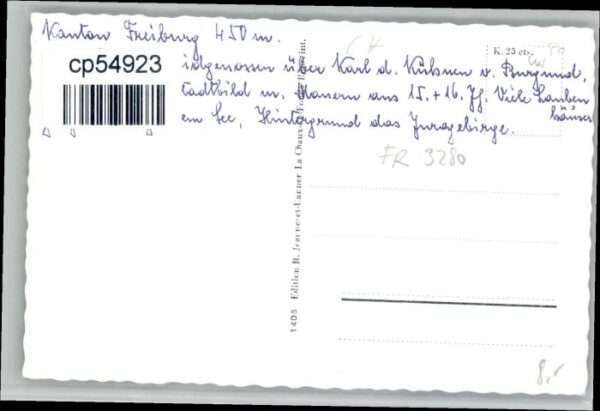 Kanton Freiburg 450 m.
idgenossen über Karl d. Kühnen v. Burgund,
tadtbild m. Mauern aus 15. + 16. Jh. Viele Lauben
häuser
em See, Hintergrund das Juragebirge.
cp54923
K. 25 cts.
CH
FR 3280
1405 Edition R. Jeanneret-Lanner La Chaux-de-Fonds
8.-